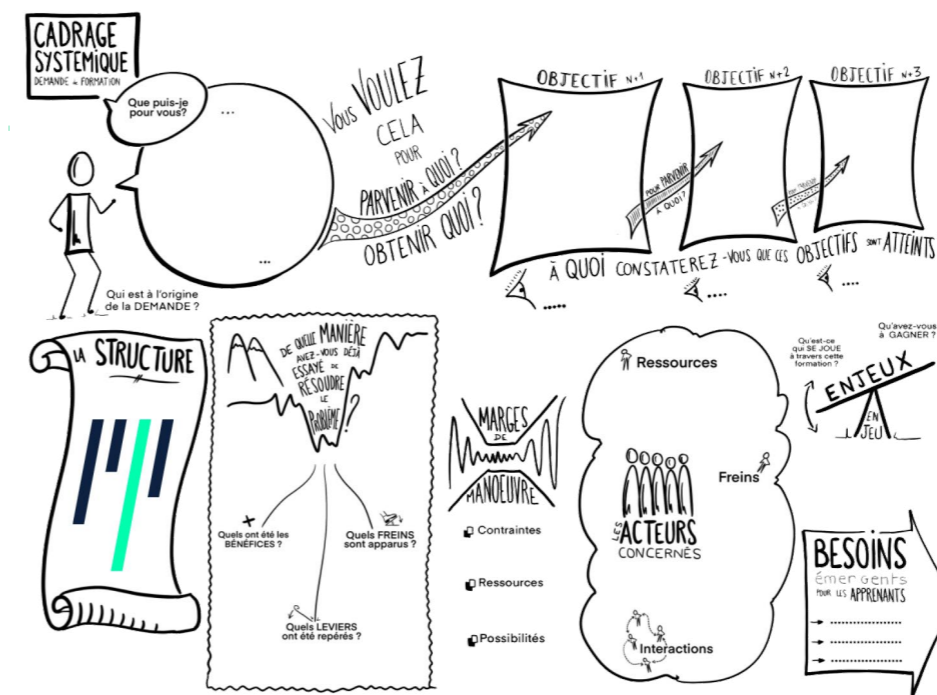 CADRAGE
SYSTEMIQUE
DEMANDE de FORMATION
Que puis-je
pour vous?
...
...
Qui est à l'origine
de la DEMANDE ?
VOUS VOULEZ
CELA
POUR
PARVENIR à QUOI ?
OBTENIR QUOI ?
OBJECTIF N+1
OBJECTIF N+2
OBJECTIF N+3
POUR PARVENIR
À QUOI ?
À QUOI CONSTATEREZ-VOUS QUE CES OBJECTIFS SONT ATTEINTS
.....
....
....
LA STRUCTURE
DE QUELLE MANIÈRE
AVEZ-VOUS DÉJÀ
ESSAYÉ DE
RÉSOUDRE
LE
PROBLÈME ?
Quels ont été les
BÉNÉFICES ?
Quels FREINS
sont apparus ?
Quels LEVIERS
ont été repérés ?
MARGES
DE
MANOEUVRE
Contraintes
Ressources
Possibilités
Ressources
Freins
LES ACTEURS
CONCERNÉS
Interactions
Qu'est-ce
qui SE JOUE
à travers cette
formation ?
Qu'avez-vous
à GAGNER ?
ENJEUX
EN
JEU
BESOINS
émergents
POUR LES APPRENANTS